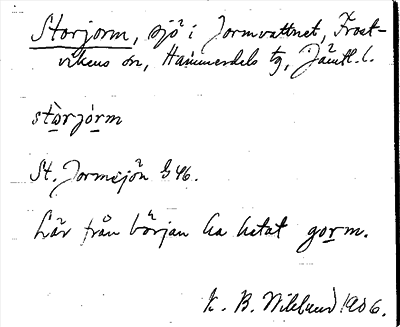 Storjorm, sjö i Jormvattnet, Frost-
vikens sn, Hammerdals tg, Jämtl. l.
stòrjórm
St. Jormsjön G 46.
Lär från början ha hetat gorm.
K. B. Wiklund 1906.